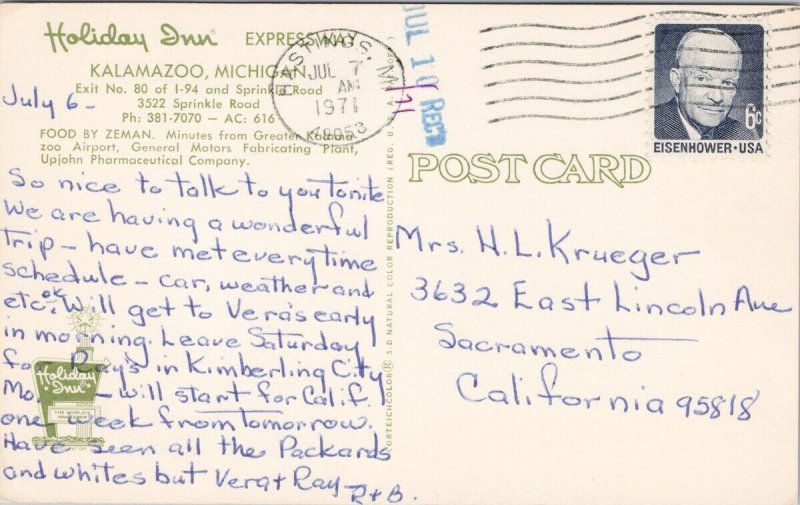 Holiday Inn EXPRESSWAY
KALAMAZOO, MICHIGAN
Exit No. 80 of I-94 and Sprinkle Road
3522 Sprinkle Road
Ph: 381-7070 — AC: 616
FOOD BY ZEMAN. Minutes from Greater Kalama-
zoo Airport, General Motors Fabricating Plant,
Upjohn Pharmaceutical Company.
July 6 -
So nice to talk to you tonite
We are having a wonderful
trip - have met every time
schedule - car, weather and
etc. ok. Will get to Vera's early
in morning. Leave Saturday
for Ray's in Kimberling City
Mo. - will start for Calif.
one week from tomorrow.
Have seen all the Packards
and whites but Vera + Ray
R+B.
Holiday Inn
THE WORLD'S
INNKEEPER
HASTINGS, M
JUL 7
AM
1971
49058
JUL 10 REC'D
71
6c
EISENHOWER · USA
POST CARD
CURTEICHCOLOR® 3-D NATURAL COLOR REPRODUCTION (REG. U.S.A.
Mrs. H. L. Krueger
3632 East Lincoln Ave
Sacramento
California 95818